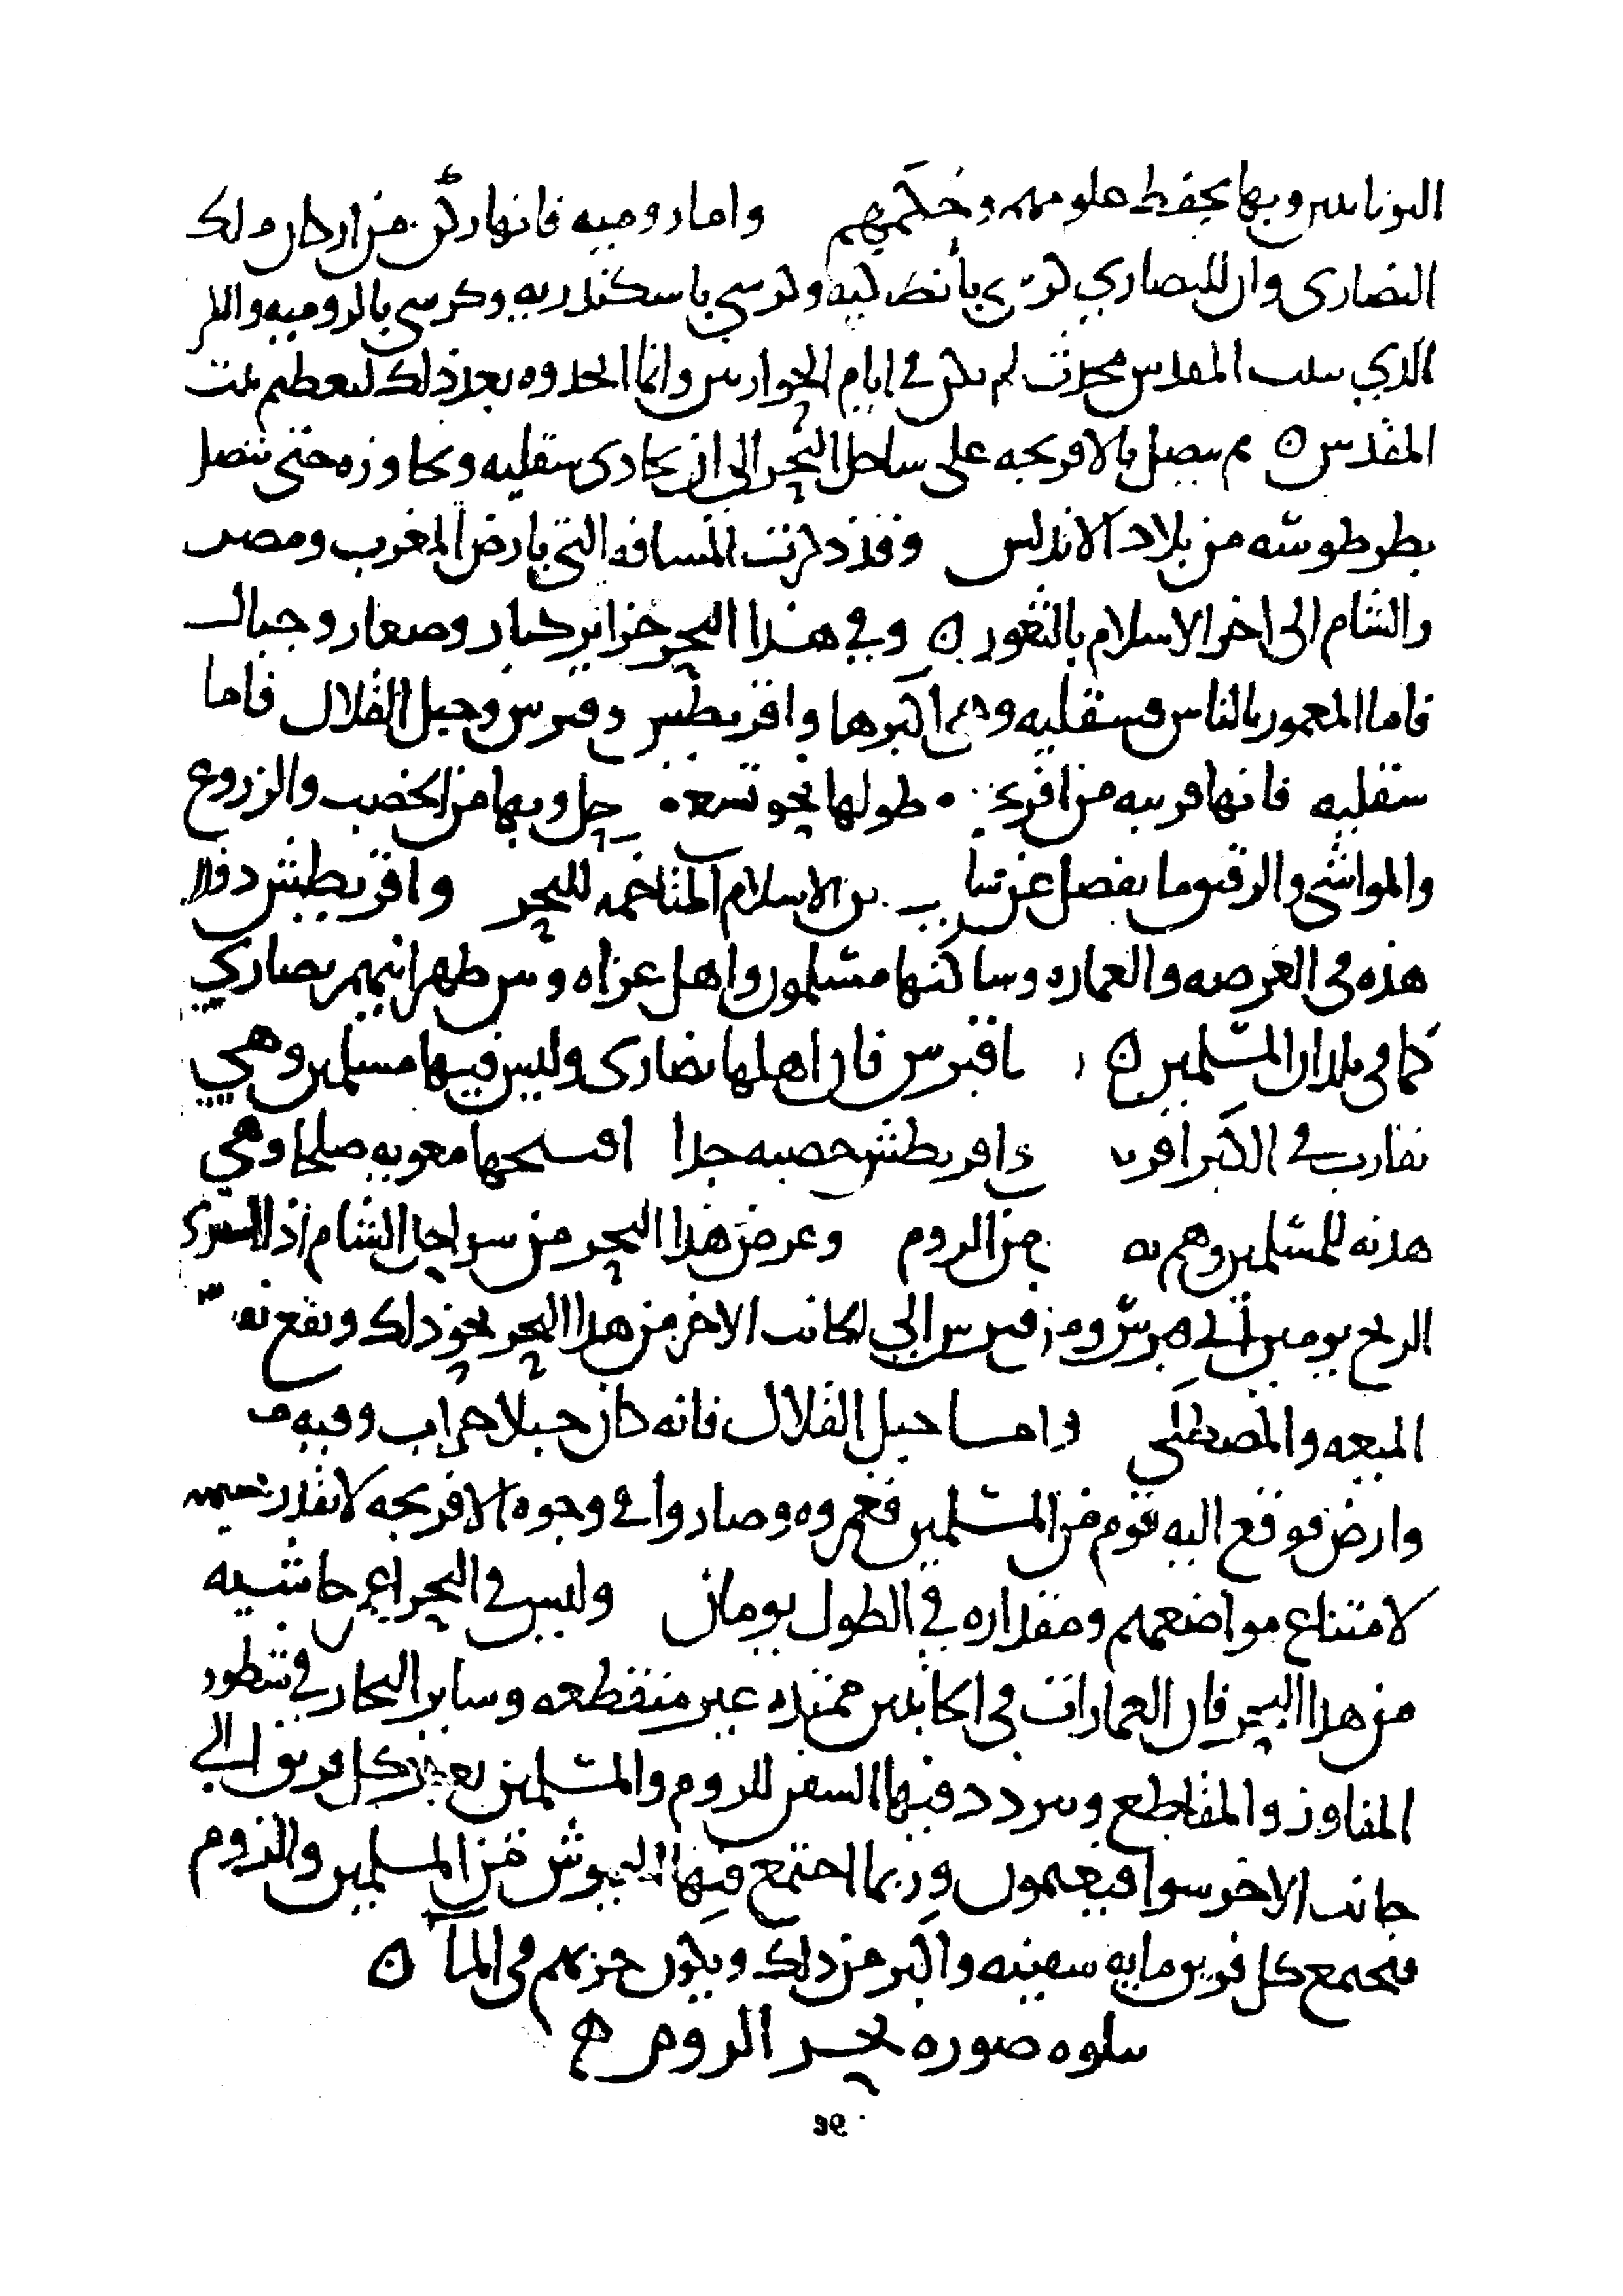 اليونانيين وبها يحفظ علومهم وحكمهم واما رومية فانها ركن من اركان ملك
النصارى وان للنصاري كرسي بأنطاكيه وكرسي باسكندريه وكرسي بالروميه والكرسي
الذي ببيت المقدس محدث لم يكن في ايام الحواريين وانما اتخذوه بعد ذلك لتعظيم بيت
المقدس ثم يتصل بالافرنجه على ساحل البحر الى ان يحاذى سقليه ويجاوزه حتى يتصل
بطرطوشه من بلاد الاندلس وقد ذكرت المسافه التي بارض المغرب ومصر
والشام الى اخر الاسلام بالثغور وفي هذا البحر جزاير كبار وصغار وجبال
فاما المعمور بالناس فسقليه وهي اكبرها واقريطش وقبرس وجبل القلال فاما
سقليه فانها قريبه من افرنجه طولها نحو تسعه مراحل وبها من الخصب والزروع
والمواشي والرقيق وما يفضل عن ساير الاسلام المتاخمه للبحر واقريطش دون
هذه في العرصه والعماره وساكنها مسلمون واهل غزاه وبين ظهرانيهم نصاري
كما في بلدان المسلمين قبرس فان اهلها نصارى وليس فيها مسلمين وهي
تقارب في الكبر اقريطش خصبه جدا افتتحها معويه صلحا وهي
هدنه للمسلمين وهم من الروم وعرض هذا البحر من سواحل الشام اذا
الريح يومين الي قبرس ومن قبرس الي الجانب الاخر من هذا البحر نحو ذلك ويقع به
الميعه والمصطكى واما جبل القلال فانه كان جبلا خراب وفيه
وارض فوقع اليه قوم من المسلمين فعمروه وصاروا في وجوه الافرنجه لا يقدر عليهم
لامتناع مواضعهم ومقداره في الطول يومان وليس في البحر اعمر حاشيه
من هذا البحر فان العمارات في الجانبين ممتده غير منقطعه وساير البحار في شطوط
المفاوز والمقاطع وتتردد فيها السفن للروم والمسلمين يعبر كل فريق الي
جانب الاخر سوا فيغنمون وربما اجتمع فيها الجيوش من المسلمين والروم
فيجتمع كل فريق مايه سفينه واكبر من ذلك ويكون حربهم في الما
يتلوه صوره بحر الروم